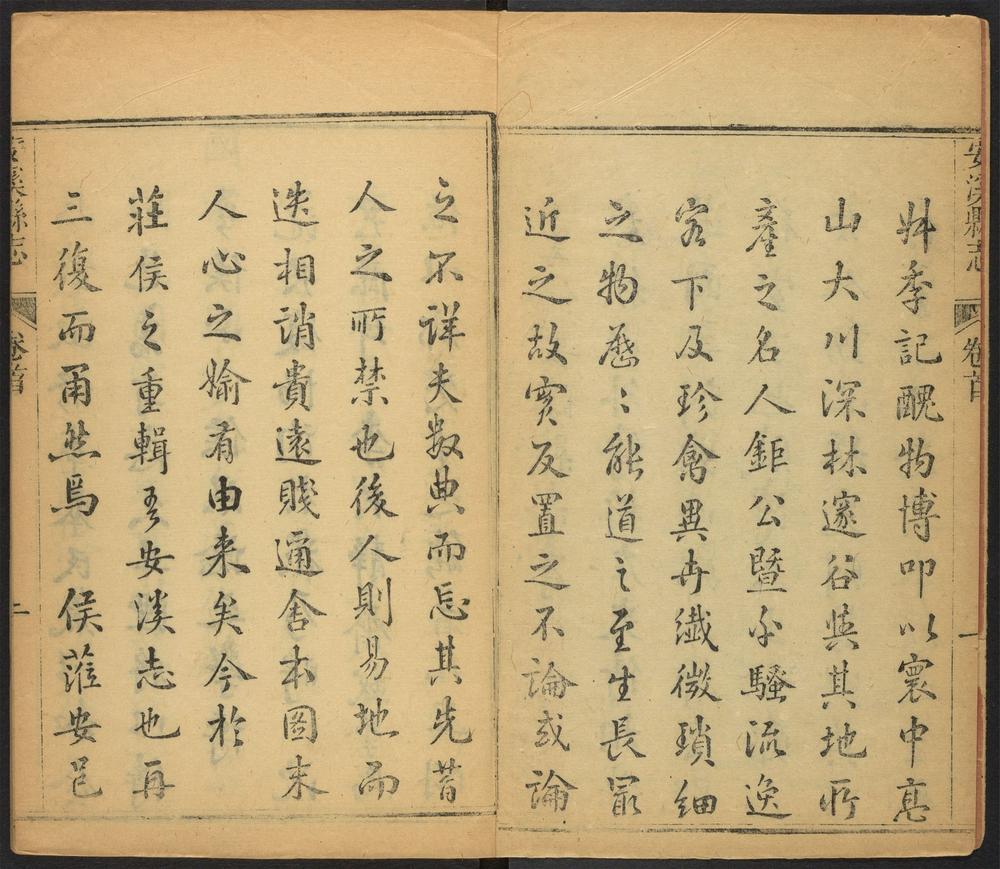 安溪縣志 卷首 一
季記醜物博叩以寰中髙
山大川深林邃谷與其地所
產之名人鉅公暨騷流逸
客下及珍禽異卉纖微瑣細
之物歷〻能道之至生長最
近之故實反置之不論或論
之不詳夫数典而忘其先昔
人之所禁也後人則易地而
迭相誚貴遠賤邇舍本圖末
人心之媮有由来矣今於
莊侯之重輯吾安溪志也再
三復而然焉 侯蒞安邑
安溪縣志 卷首 二